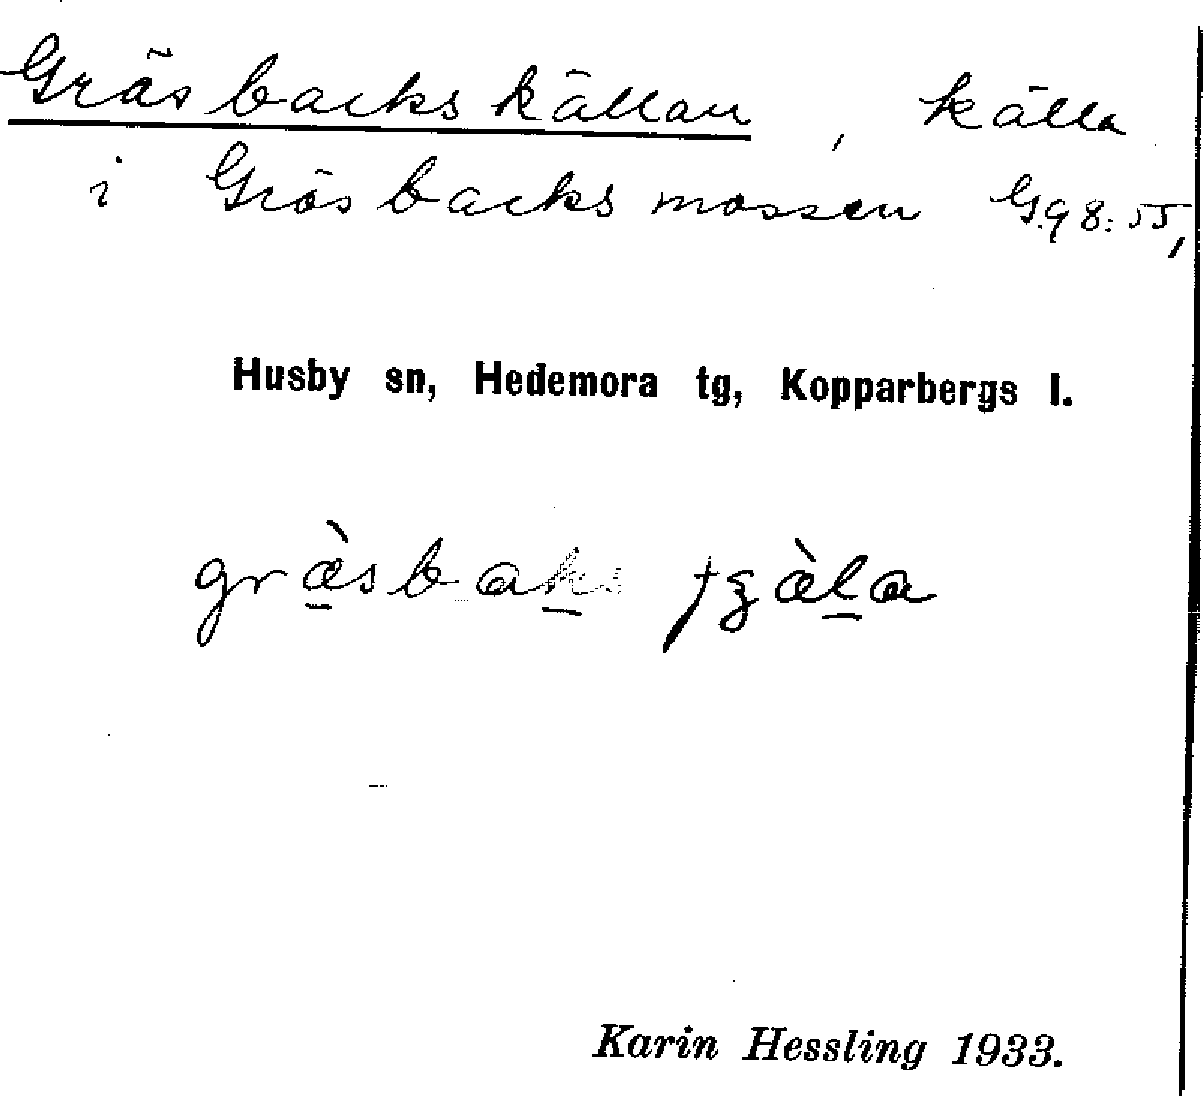 Gräsbackskällan, källa
i Gräsbacksmossen G.98:55,
Husby sn, Hedemora tg, Kopparbergs l.
græ̀sbaks
Karin Hessling 1933.